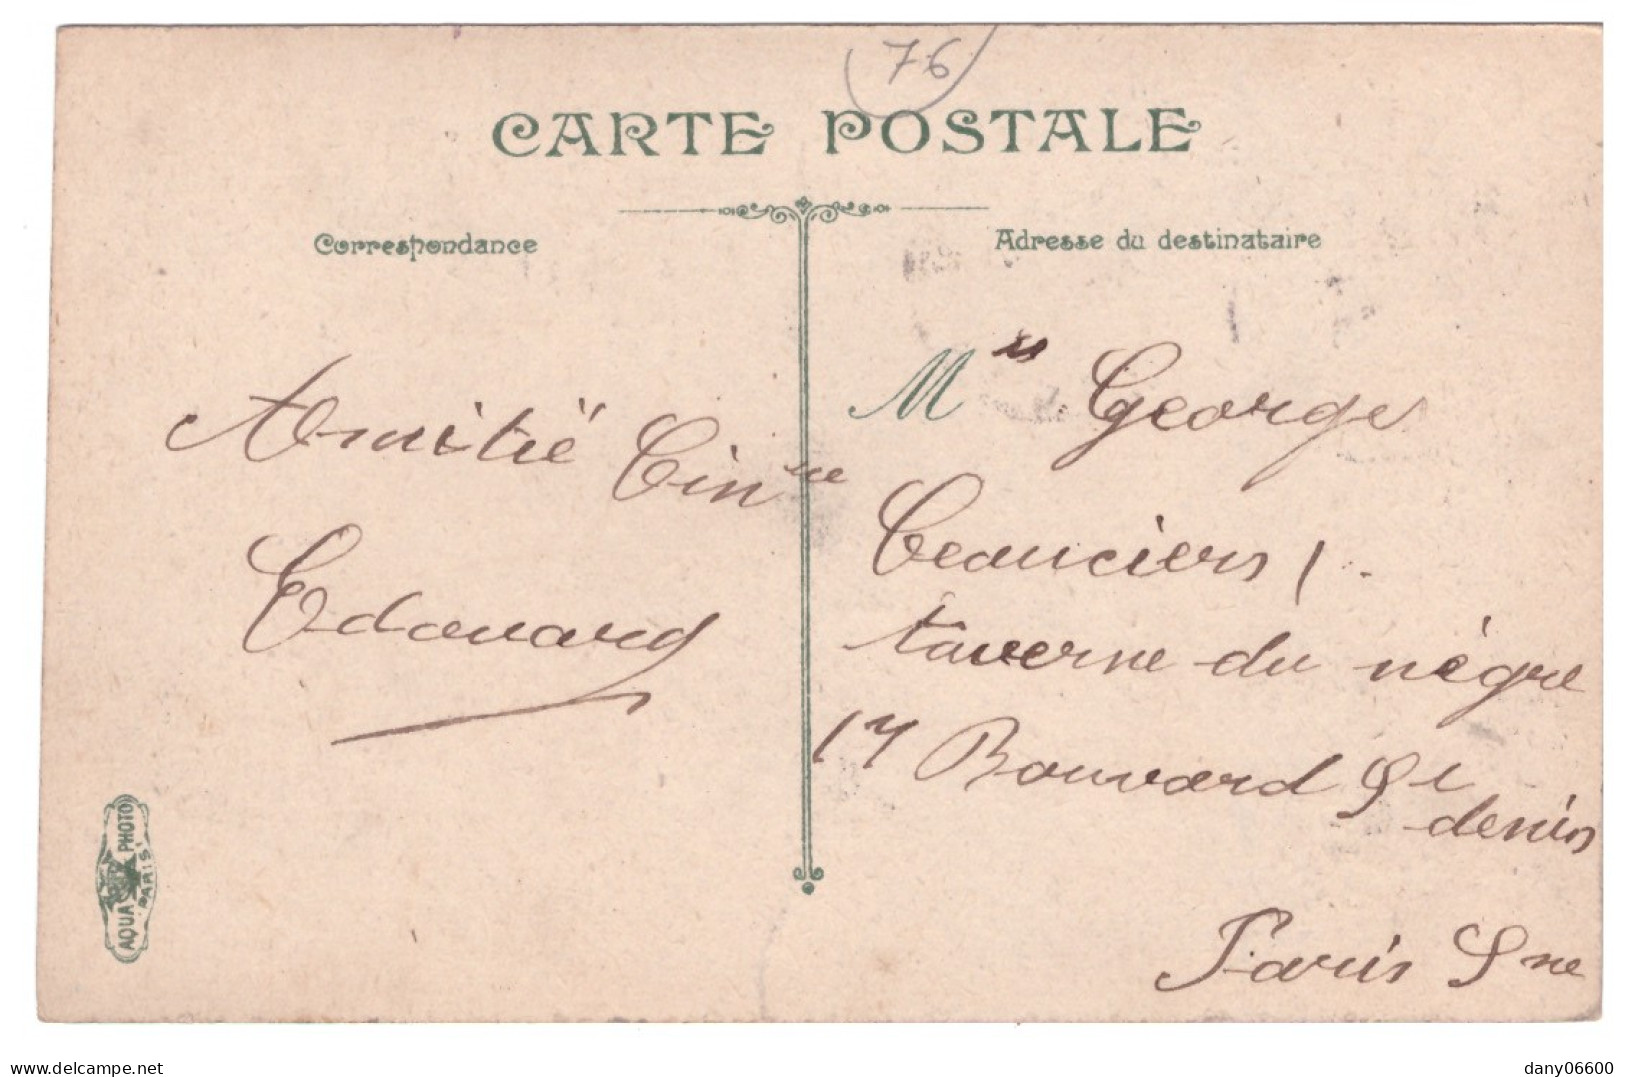 76
CARTE POSTALE
Correspondance
Adresse du destinataire
Amitié Cin
Edouard
M rs George
Ceanciers / .
taverne du nègre
17 Bouvard St
denis
Paris Sne
AQUA PHOTO
PARIS
delcampe.net
dany06600